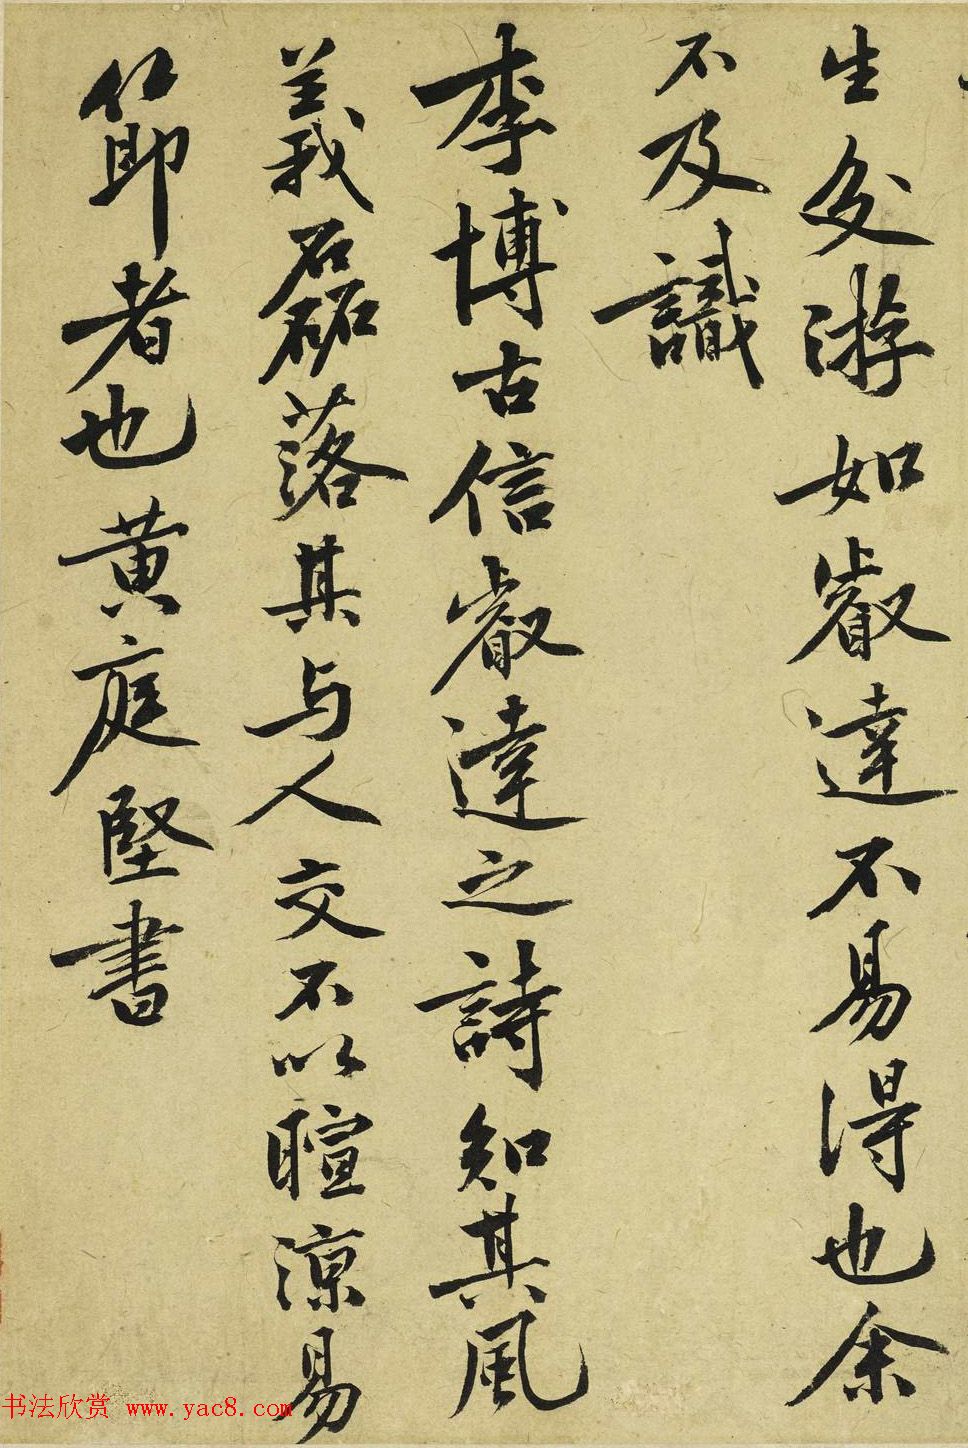 生交游如叡達不易得也余
不及識
李博古信叡達之詩知其風
義磊落其与人交不以暄涼易
節者也黄庭堅書
书法欣赏 www.yac8.com